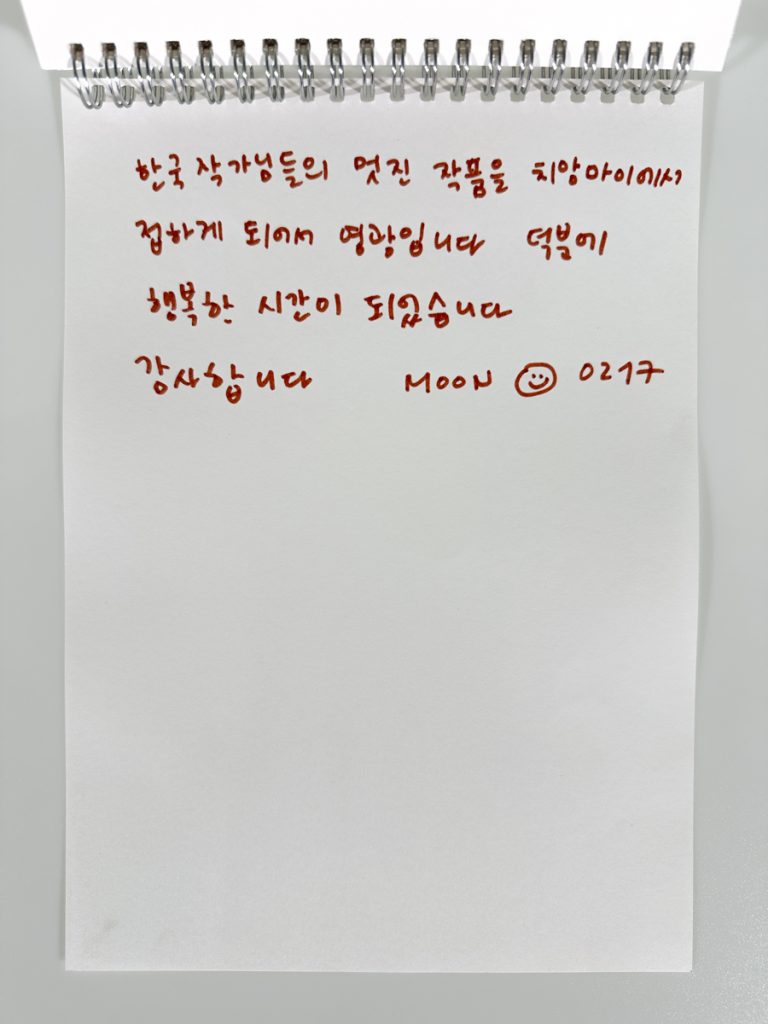 한국 작가님들의 멋진 작품을 치앙마이에서
접하게 되어서 영광입니다 덕분에
행복한 시간이 되었습니다
감사합니다 MOON 0217